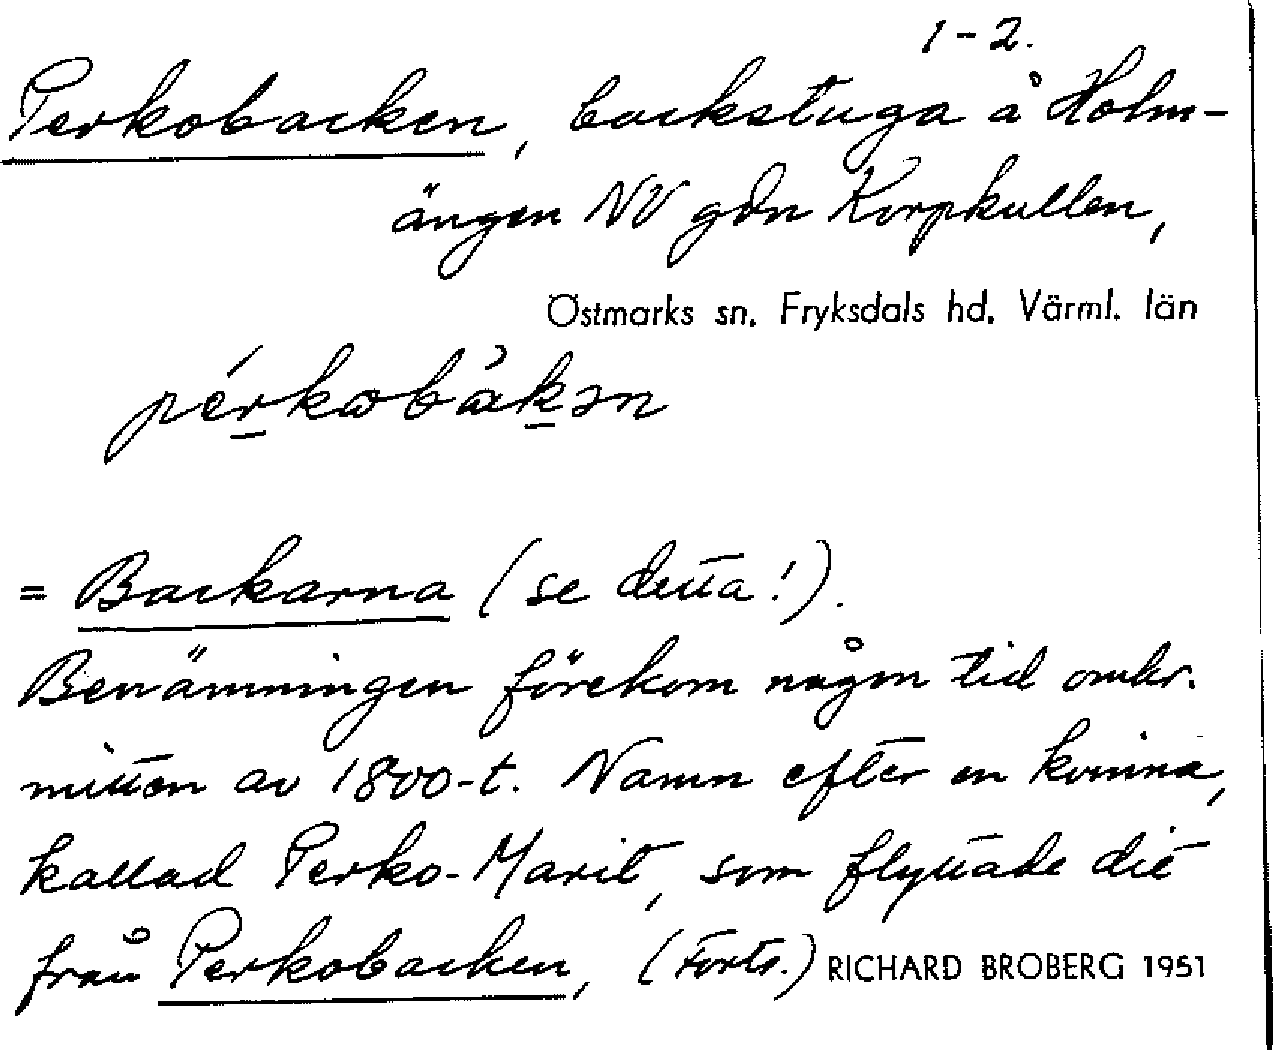 1-2.
Perkobacken, backstuga å Holm-
ängen NV gdn Korpkullen,
Östmarks sn. Fryksdals hd. Värml. län
pérkωbàkən
= Backarna (se detta!).
Benämningen förekom någon tid omkr.
mitten av 1800-t. Namn efter en kvinna,
kallad Perko-Marit, som flyttade dit
från Perkobacken, (Forts.) RICHARD BROBERG 1951